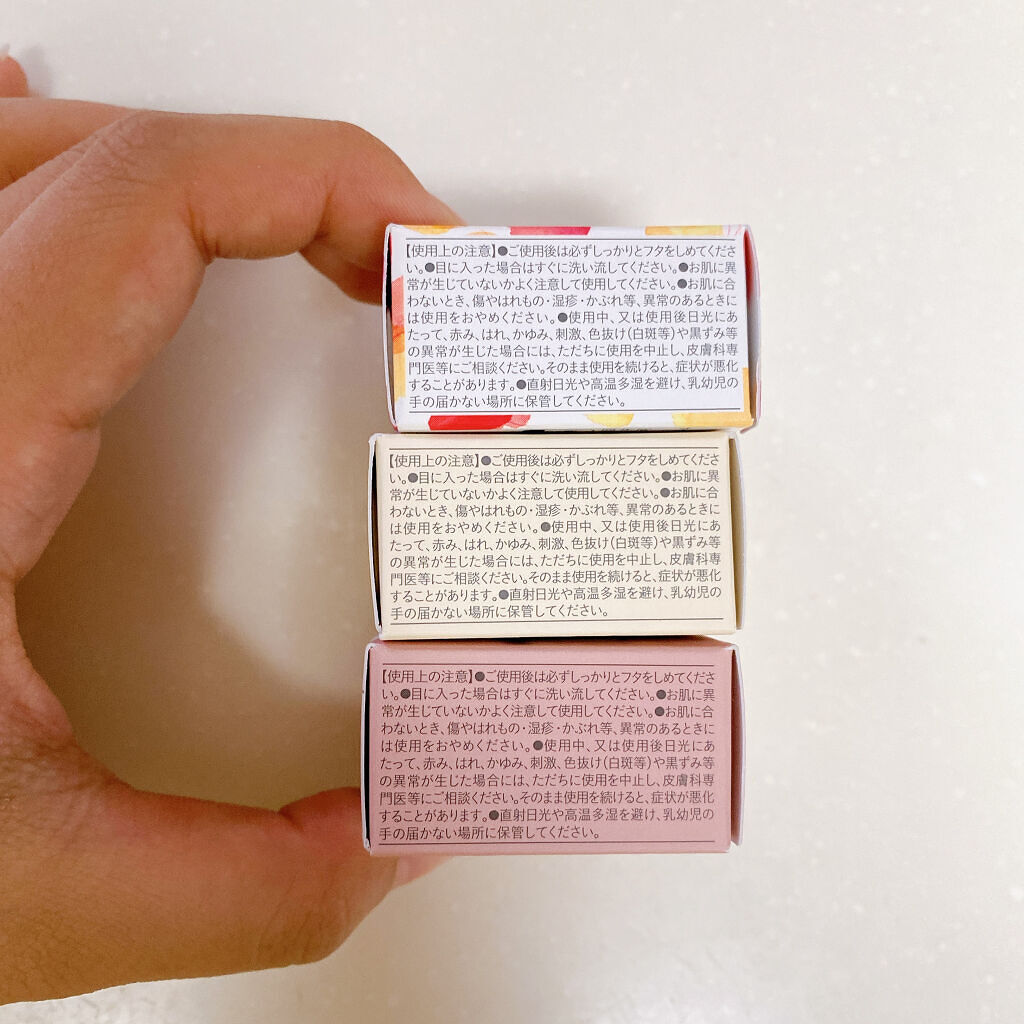 【使用上の注意】●ご使用後は必ずしっかりとフタをしめてくださ
い。●目に入った場合はすぐに洗い流してください。●お肌に異
常が生じていないかよく注意して使用してください。●お肌に合
わないとき、傷やはれもの・湿疹・かぶれ等、異常のあるときに
は使用をおやめください。●使用中、又は使用後日光にあ
たって、赤み、はれ、かゆみ、刺激、色抜け(白斑等)や黒ずみ等
の異常が生じた場合には、ただちに使用を中止し、皮膚科専
門医等にご相談ください。そのまま使用を続けると、症状が悪化
することがあります。●直射日光や高温多湿を避け、乳幼児の
手の届かない場所に保管してください。
【使用上の注意】●ご使用後は必ずしっかりとフタをしめてくださ
い。●目に入った場合はすぐに洗い流してください。●お肌に異
常が生じていないかよく注意して使用してください。●お肌に合
わないとき、傷やはれもの・湿疹・かぶれ等、異常のあるときに
は使用をおやめください。●使用中、又は使用後日光にあ
たって、赤み、はれ、かゆみ、刺激、色抜け(白斑等)や黒ずみ等
の異常が生じた場合には、ただちに使用を中止し、皮膚科専
門医等にご相談ください。そのまま使用を続けると、症状が悪化
することがあります。●直射日光や高温多湿を避け、乳幼児の
手の届かない場所に保管してください。
【使用上の注意】●ご使用後は必ずしっかりとフタをしめてくださ
い。●目に入った場合はすぐに洗い流してください。●お肌に異
常が生じていないかよく注意して使用してください。●お肌に合
わないとき、傷やはれもの・湿疹・かぶれ等、異常のあるときに
は使用をおやめください。●使用中、又は使用後日光にあ
たって、赤み、はれ、かゆみ、刺激、色抜け(白斑等)や黒ずみ等
の異常が生じた場合には、ただちに使用を中止し、皮膚科専
門医等にご相談ください。そのまま使用を続けると、症状が悪化
することがあります。●直射日光や高温多湿を避け、乳幼児の
手の届かない場所に保管してください。